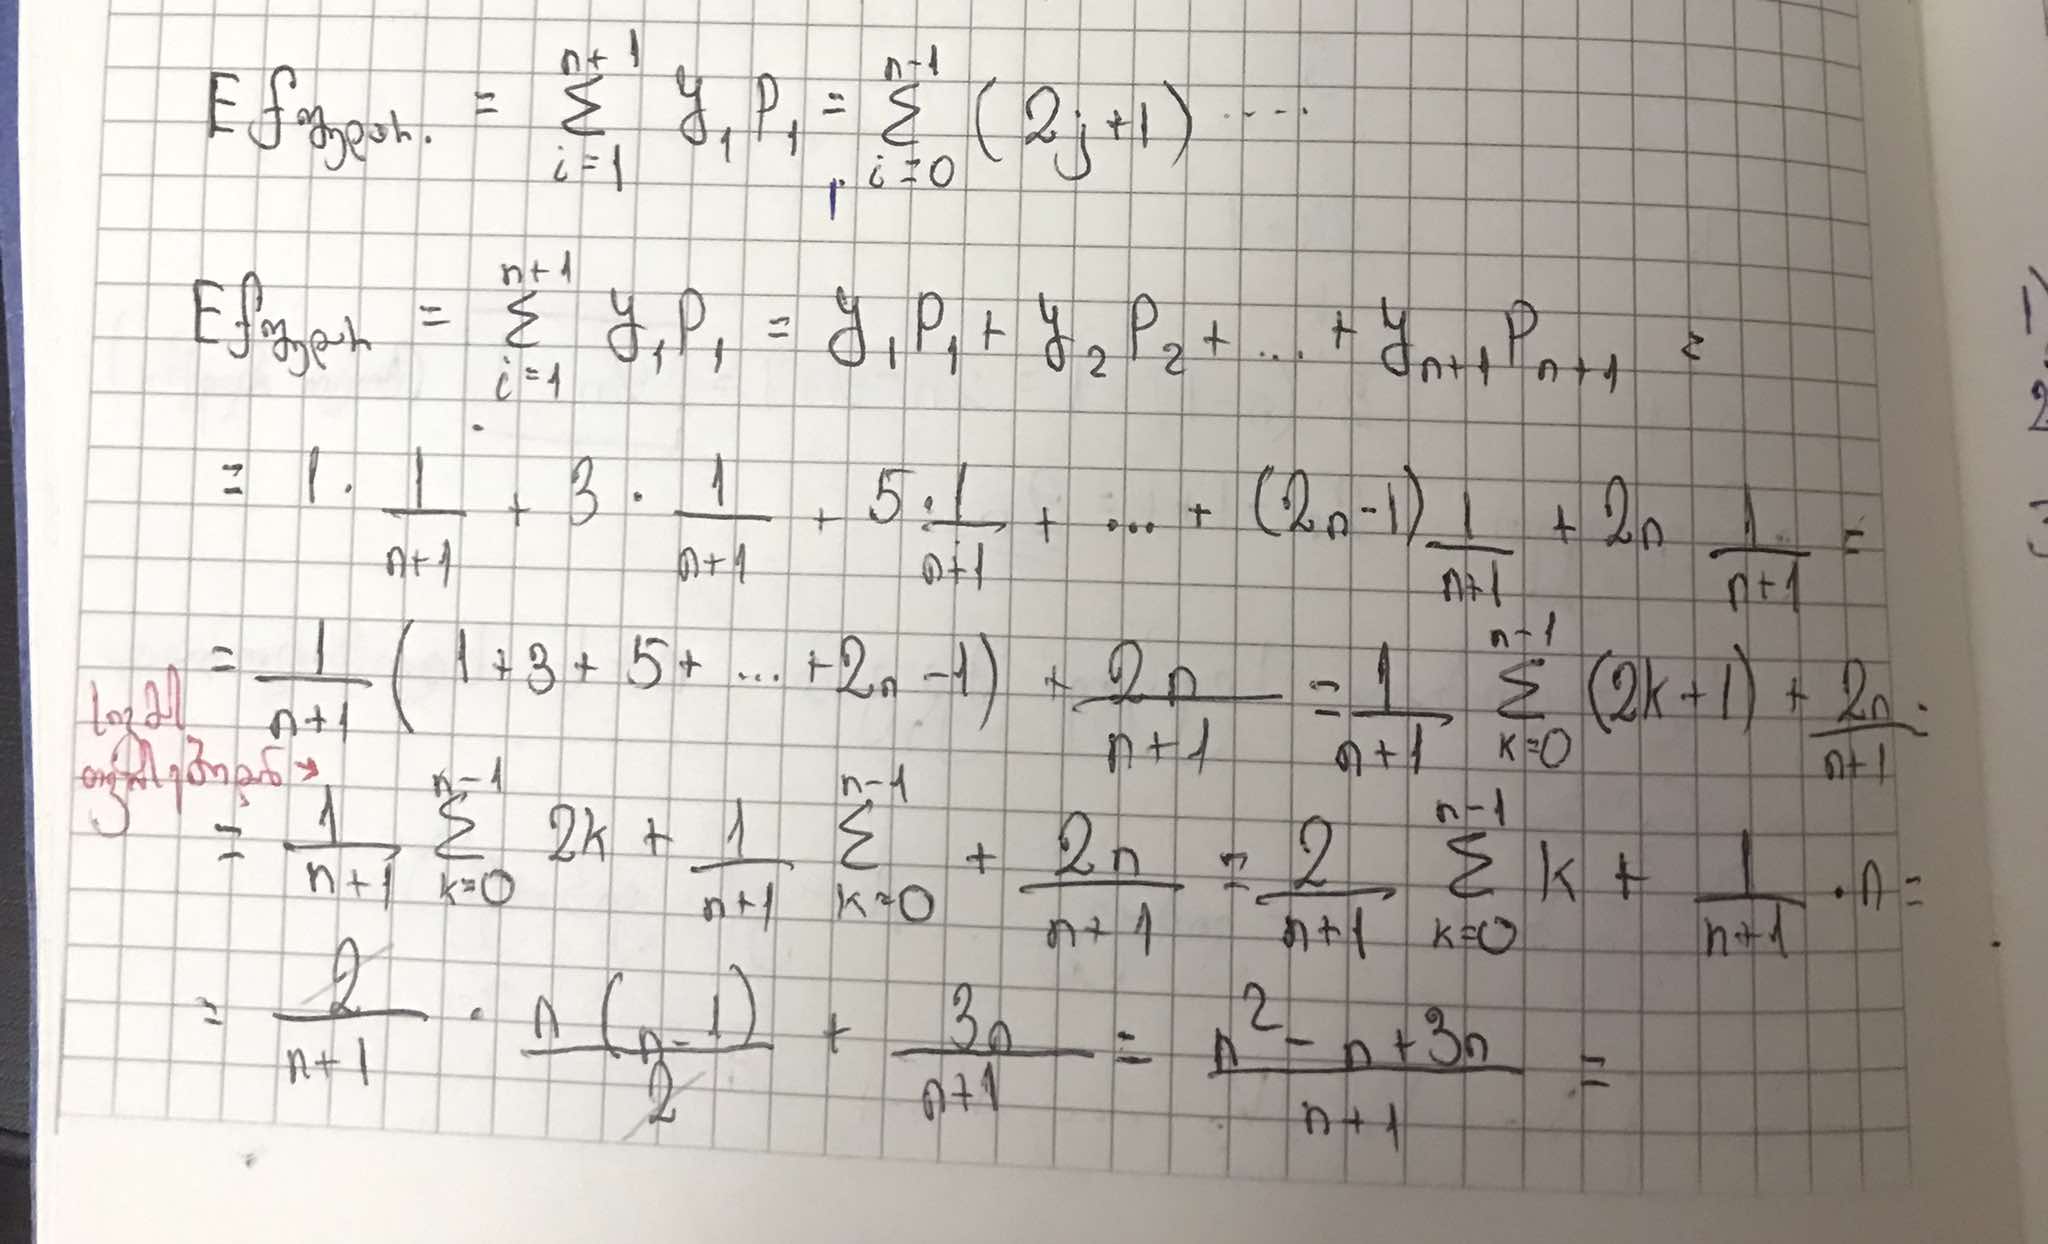 E f = Σ_{i=1}^{n+1} y₁ P₁ = Σ_{i=0}^{n-1} (2j+1) ....
E f = Σ_{i=1}^{n+1} y₁P₁ = y₁P₁ + y₂P₂ + ... + y_{n+1} P_{n+1} =
= 1 · 1/(n+1) + 3 · 1/(n+1) + 5 · 1/(n+1) + ... + (2n-1) 1/(n+1) + 2n 1/(n+1) =
= 1/(n+1) (1 + 3 + 5 + ... + 2n - 1) + 2n/(n+1) = 1/(n+1) Σ_{k=0}^{n-1} (2k+1) + 2n/(n+1) .
= 1/(n+1) Σ_{k=0}^{n-1} 2k + 1/(n+1) Σ_{k=0}^{n-1} + 2n/(n+1) = 2/(n+1) Σ_{k=0}^{n-1} k + 1/(n+1) · n =
= 2/(n+1) · n(n-1)/2 + 3n/(n+1) = (n² - n + 3n)/(n+1) =
1)
2
3